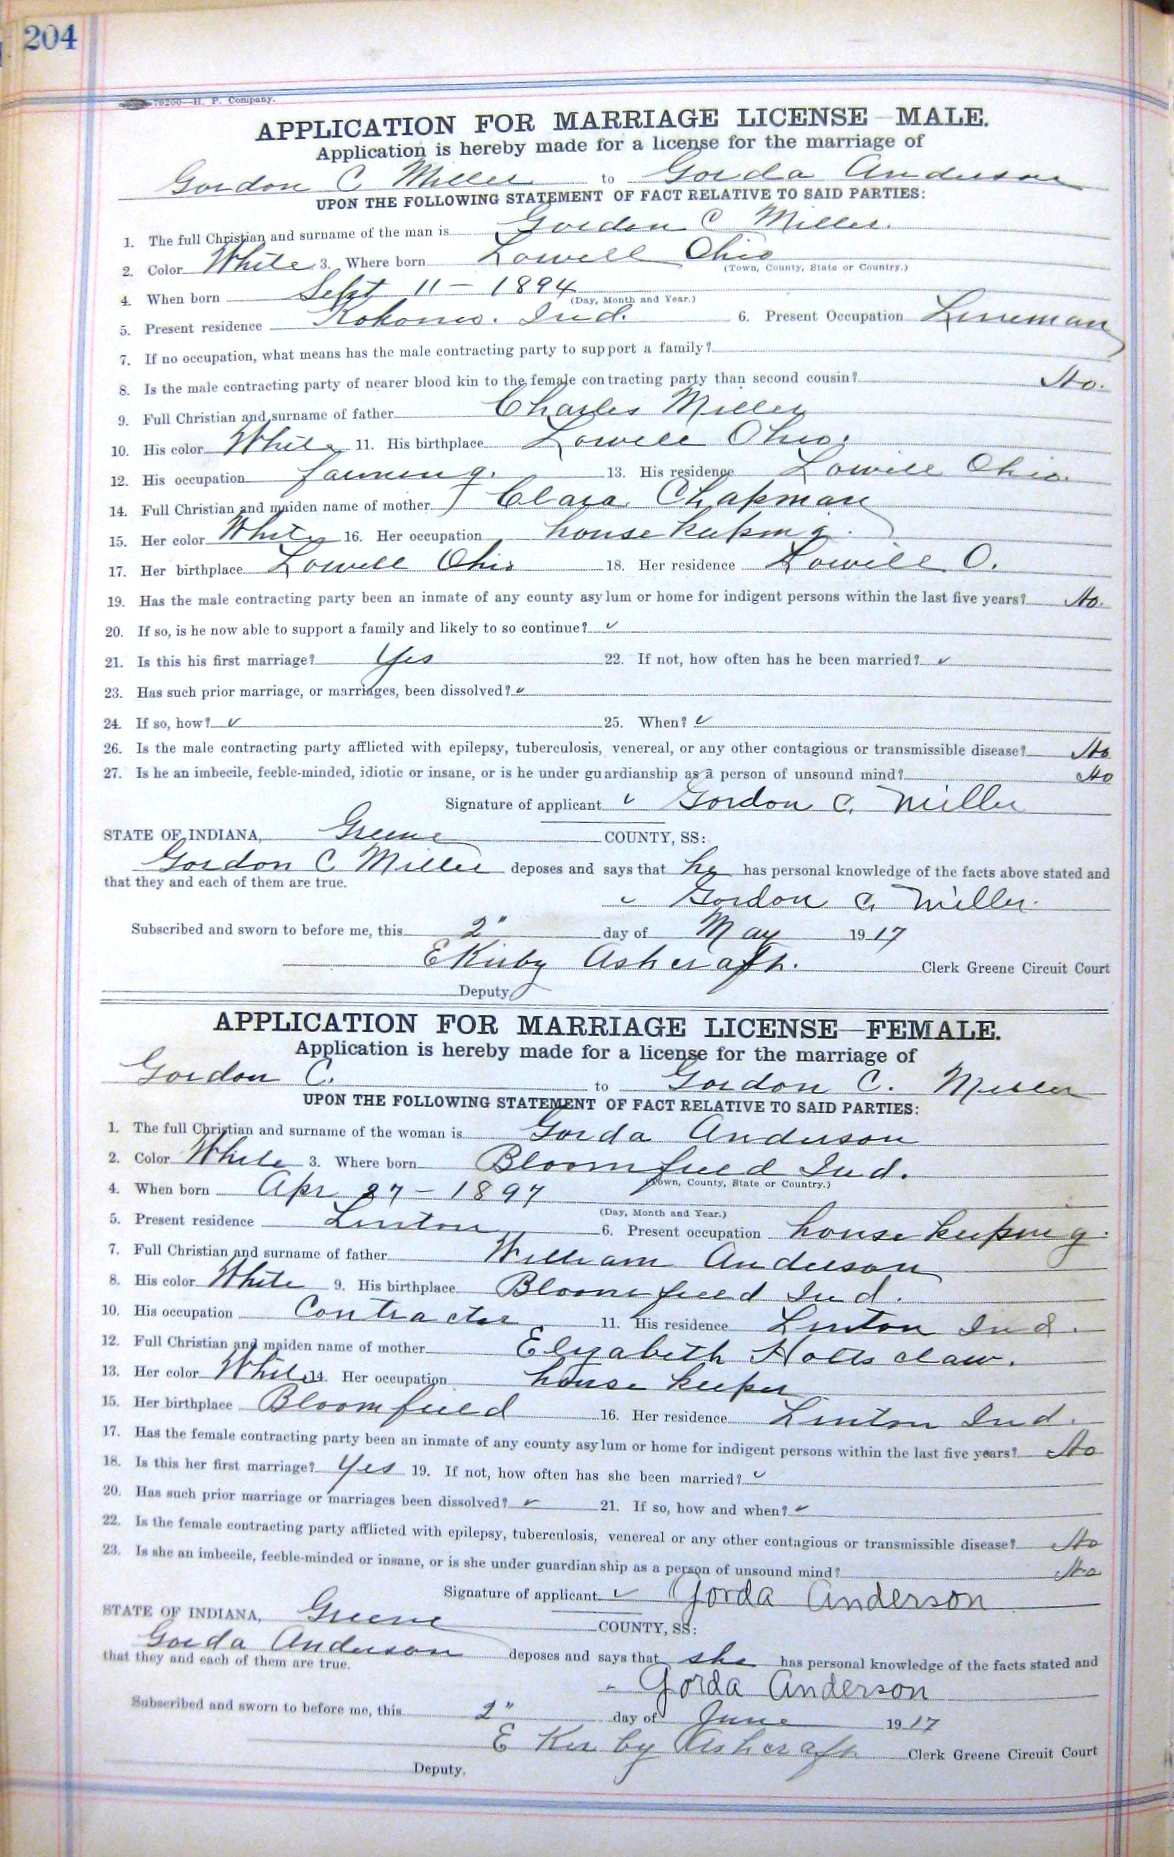 204
79200—H. P. Company.
APPLICATION FOR MARRIAGE LICENSE—MALE.
Application is hereby made for a license for the marriage of
Gordon C Miller to Gorda Anderson
UPON THE FOLLOWING STATEMENT OF FACT RELATIVE TO SAID PARTIES:
1. The full Christian and surname of the man is Gordon C Miller.
2. Color White 3. Where born Lowell Ohio
(Town, County, State or Country.)
4. When born Sept 11 - 1894
(Day, Month and Year.)
5. Present residence Kokomo. Ind. 6. Present Occupation Lineman
7. If no occupation, what means has the male contracting party to support a family?
8. Is the male contracting party of nearer blood kin to the female contracting party than second cousin? No.
9. Full Christian and surname of father Charles Miller
10. His color White 11. His birthplace Lowell Ohio.
12. His occupation farming. 13. His residence Lowell Ohio.
14. Full Christian and maiden name of mother Clara Chapman
15. Her color White 16. Her occupation house keeping.
17. Her birthplace Lowell Ohio 18. Her residence Lowell O.
19. Has the male contracting party been an inmate of any county asylum or home for indigent persons within the last five years? No.
20. If so, is he now able to support a family and likely to so continue? ✓
21. Is this his first marriage? Yes 22. If not, how often has he been married? ✓
23. Has such prior marriage, or marriages, been dissolved? ✓
24. If so, how? ✓ 25. When? ✓
26. Is the male contracting party afflicted with epilepsy, tuberculosis, venereal, or any other contagious or transmissible disease? No
27. Is he an imbecile, feeble-minded, idiotic or insane, or is he under guardianship as a person of unsound mind? No
Signature of applicant ✓ Gordon C. Miller
STATE OF INDIANA, Greene COUNTY, SS:
Gordon C Miller deposes and says that he has personal knowledge of the facts above stated and
that they and each of them are true.
✓ Gordon C. Miller.
Subscribed and sworn to before me, this 2" day of May 1917
E Kirby Ashcraft. Clerk Greene Circuit Court
Deputy
APPLICATION FOR MARRIAGE LICENSE—FEMALE.
Application is hereby made for a license for the marriage of
Gordon C. to Gordon C. Miller
UPON THE FOLLOWING STATEMENT OF FACT RELATIVE TO SAID PARTIES:
1. The full Christian and surname of the woman is Gorda Anderson
2. Color White 3. Where born Bloomfield Ind.
(Town, County, State or Country.)
4. When born Apr 27 - 1897
(Day, Month and Year.)
5. Present residence Linton 6. Present occupation house keeping.
7. Full Christian and surname of father William Anderson
8. His color White 9. His birthplace Bloomfield Ind.
10. His occupation Contractor 11. His residence Linton Ind.
12. Full Christian and maiden name of mother Elizabeth Holtsclaw.
13. Her color White 14. Her occupation house keeper
15. Her birthplace Bloomfield 16. Her residence Linton Ind.
17. Has the female contracting party been an inmate of any county asylum or home for indigent persons within the last five years? No
18. Is this her first marriage? Yes 19. If not, how often has she been married? ✓
20. Has such prior marriage or marriages been dissolved? ✓ 21. If so, how and when? ✓
22. Is the female contracting party afflicted with epilepsy, tuberculosis, venereal or any other contagious or transmissible disease? No
23. Is she an imbecile, feeble-minded or insane, or is she under guardianship as a person of unsound mind? No
Signature of applicant ✓ Gorda Anderson
STATE OF INDIANA, Greene COUNTY, SS:
Gorda Anderson deposes and says that she has personal knowledge of the facts stated and
that they and each of them are true.
Gorda Anderson
Subscribed and sworn to before me, this 2" day of June 1917
E Kirby Ashcraft Clerk Greene Circuit Court
Deputy.